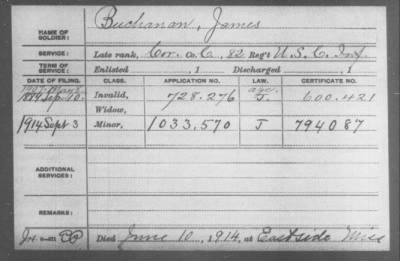 NAME OF SOLDIER: Buchanan, James
SERVICE: Late rank, Cor. Co. C, 82 Reg't U.S.C. Inf.
TERM OF SERVICE: Enlisted , 1 Discharged , 1
DATE OF FILING. CLASS. APPLICATION NO. LAW. CERTIFICATE NO.
1889 Sep. 10. Invalid, 728.276 J. 600.421
Widow,
1914 Sept 3 Minor, 1033.570 J 794087
ADDITIONAL SERVICES:
REMARKS:
Died June 10, 1914, at Eastside Miss